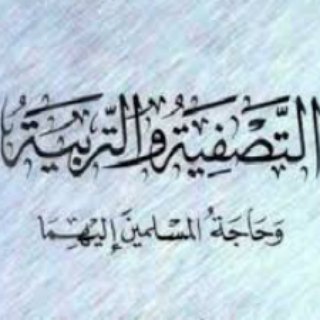 التَّصْفِيَةُ وَالتَّرْبِيَةُ
وَحَاجَةُ المُسْلِمِينَ إِلَيْهِمَا